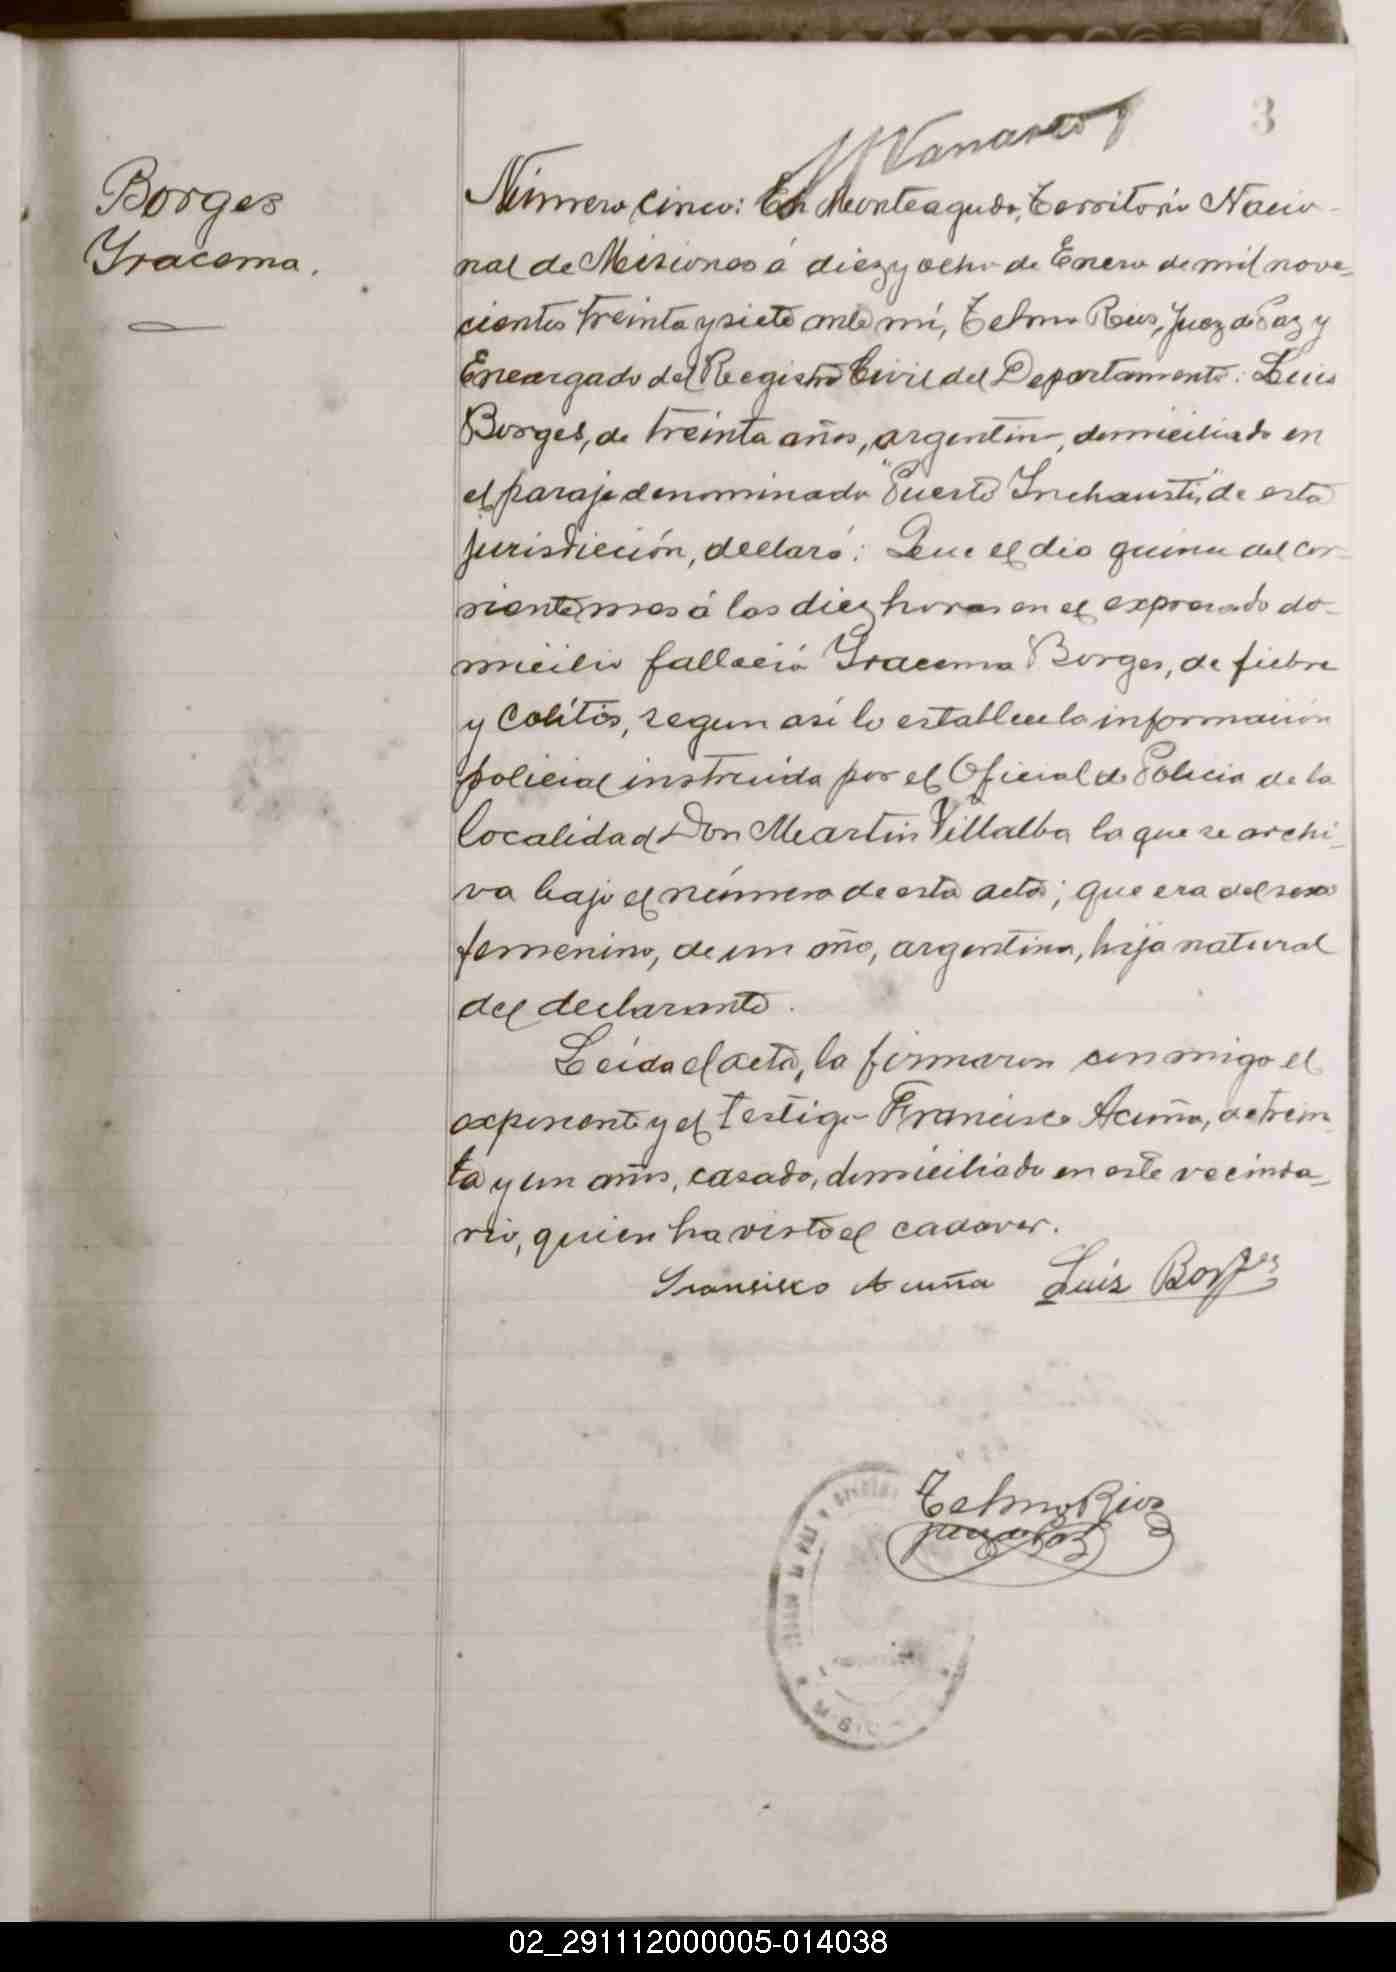 3
Borges
Yracema.
Número cinco: En Monteagudo, Territorio Nacio-
nal de Misiones á diez y ocho de Enero de mil nove-
cientos treinta y siete ante mí, Telmo Rios, Juez de Paz y
Encargado del Registro Civil del Departamento: Luis
Borges, de treinta años, argentino, domiciliado en
el paraje denominado "Puerto Inchausti", de esta
jurisdicción, declaró: Que el dia quince del cor-
riente mes á las diez horas en el expresado do-
micilio falleció Yracema Borges, de fiebre
y colitis, segun asi lo establece la información
policial instruida por el Oficial de Policia de la
localidad Don Martin Villalba la que se archi-
va bajo el número de esta acta; que era del sexo
femenino, de un año, argentina, hija natural
del declarante.
Leida el acta, la firmaron conmigo el
exponente y el testigo Francisco Acuña, de trein-
ta y un años, casado, domiciliado en este vecinda-
rio, quien ha visto el cadaver.
Fransisco Acuña Luis Borges
Telmo Rios
Juez de Paz
02_291112000005-014038